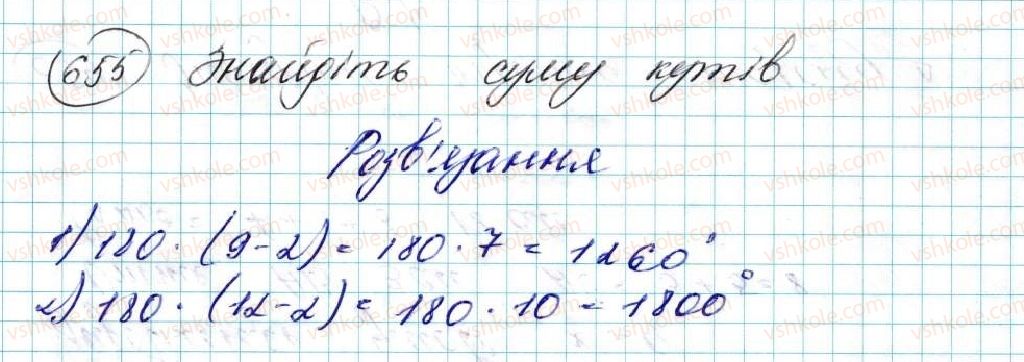 655 Знайдіть суму кутів
Розв'язання
1) 180 · (9-2) = 180 · 7 = 1260°
2) 180 · (12-2) = 180 · 10 = 1800°